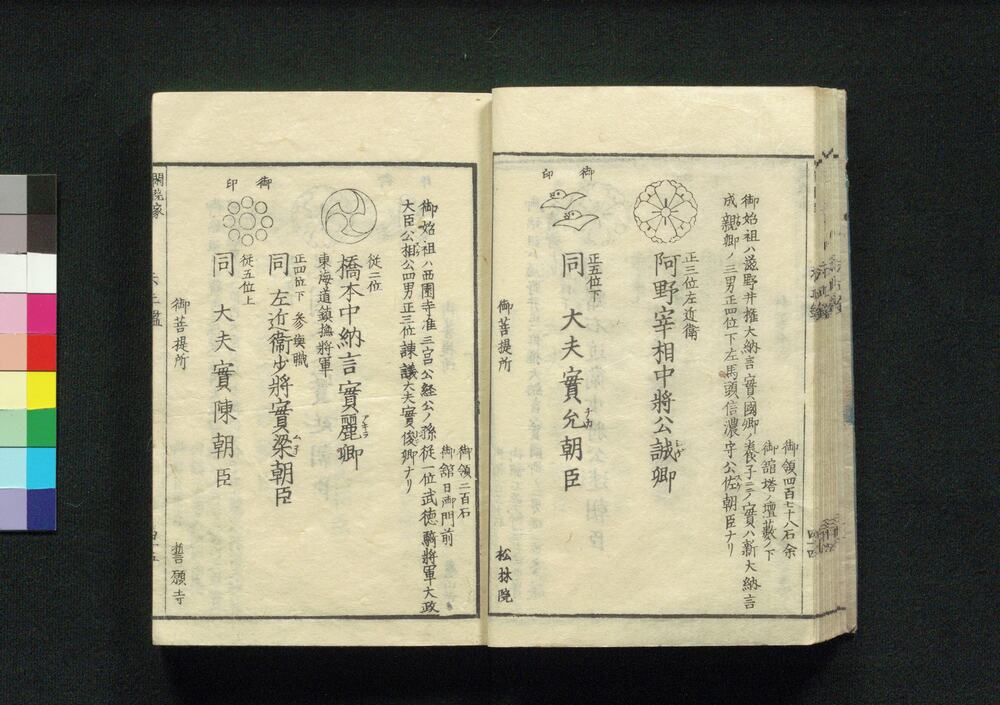 御領四百七十八石余
御舘塔ノ壇藪ノ下
御始祖ハ滋野井権大納言實國卿ノ養子ニテ實ハ新大納言
成親卿ノ三男正四位下左馬頭信濃守公佐朝臣ナリ
正三位左近衛
阿野宰相中將公誠卿
御印
正五位下
同大夫實允朝臣
御菩提所 松林院
御領二百石
御舘日御門前
御始祖ハ西園寺准三宮公経公ノ孫従一位武徳騎將軍大政
大臣公相公四男正三位諫議大夫實俊卿ナリ
従二位
橋本中納言實麗卿
アキラ
東海道鎮撫將軍
御印
正四位下 参與職
同左近衞少將實梁朝臣
ムネ
従五位上
同大夫實陳朝臣
御菩提所 誓願寺